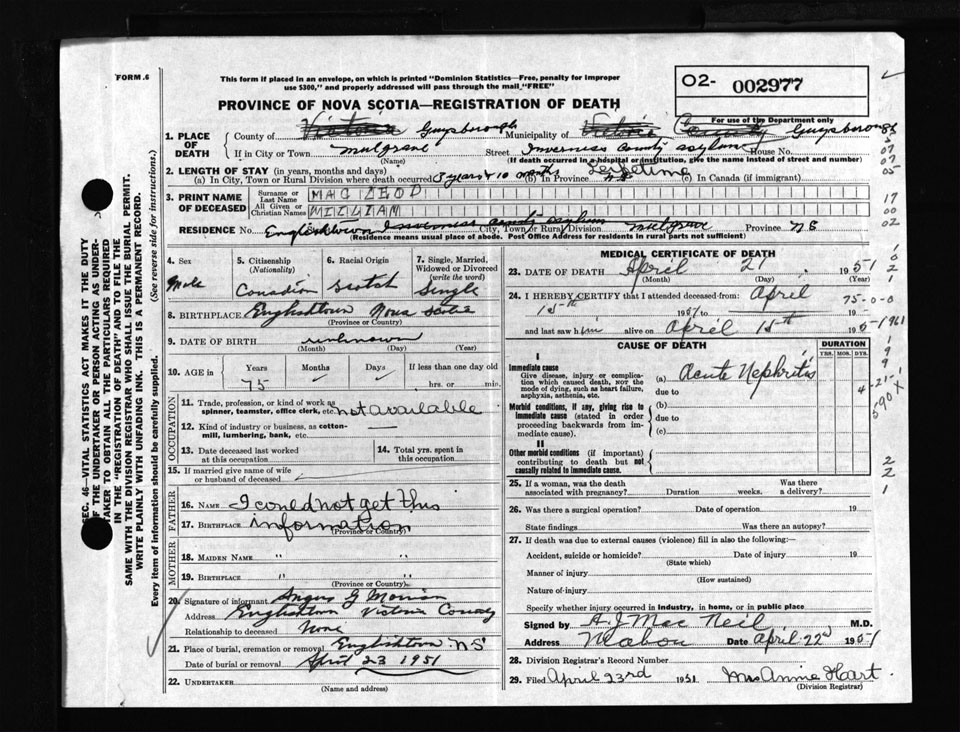 FORM .6
This form if placed in an envelope, on which is printed "Dominion Statistics—Free, penalty for improper
use $300," and properly addressed will pass through the mail "FREE"
O2- 002977
PROVINCE OF NOVA SCOTIA—REGISTRATION OF DEATH
For use of the Department only
1. PLACE OF DEATH
County of Victoria Guysborough Municipality of Victoria County Guysborough
If in City or Town Mulgrave Street Inverness County Asylum House No.
(Name) (If death occurred in a hospital or institution, give the name instead of street and number)
2. LENGTH OF STAY (in years, months and days)
(a) In City, Town or Rural Division where death occurred 3 years & 10 months (b) In Province Lifetime (c) In Canada (if immigrant)
3. PRINT NAME OF DECEASED
Surname or Last Name MAC LEOD
All Given or Christian Names WILLIAM
RESIDENCE No. Englishtown Inverness County Asylum City, Town or Rural Division Mulgrave Province N S
(Residence means usual place of abode. Post Office Address for residents in rural parts not sufficient)
4. Sex Male
5. Citizenship (Nationality) Canadian
6. Racial Origin Scotch
7. Single, Married, Widowed or Divorced (write the word) Single
8. BIRTHPLACE Englishtown Nova Scotia
(Province or Country)
9. DATE OF BIRTH unknown
(Month) (Day) (Year)
10. AGE in Years 75 Months Days If less than one day old
hrs. or min.
OCCUPATION
11. Trade, profession, or kind of work as spinner, teamster, office clerk, etc. not available
12. Kind of industry or business, as cotton-mill, lumbering, bank, etc.
13. Date deceased last worked at this occupation
14. Total yrs. spent in this occupation
15. If married give name of wife or husband of deceased
FATHER
16. NAME I could not get this
17. BIRTHPLACE information
(Province or Country)
MOTHER
18. MAIDEN NAME " "
19. BIRTHPLACE " "
(Province or Country)
20. Signature of informant Angus G Morrison
Address Englishtown Victoria County
Relationship to deceased None
21. Place of burial, cremation or removal Englishtown NS
Date of burial or removal April 23 1951
22. UNDERTAKER
(Name and address)
MEDICAL CERTIFICATE OF DEATH
23. DATE OF DEATH April 21 1951
(Month) (Day) (Year)
24. I HEREBY CERTIFY that I attended deceased from: April
15th 1951 to
and last saw him alive on April 15th 1951
CAUSE OF DEATH
DURATION
YRS. MOS. DYS.
I
Immediate cause
Give disease, injury or complication which caused death, NOT the mode of dying, such as heart failure, asphyxia, asthenia, etc.
(a) Acute Nephritis
due to
Morbid conditions, if any, giving rise to immediate cause (stated in order proceeding backwards from immediate cause).
(b)
due to
(c)
II
Other morbid conditions (if important) contributing to death but not causally related to immediate cause.
25. If a woman, was the death associated with pregnancy? Duration weeks. Was there a delivery?
26. Was there a surgical operation? Date of operation 19
State findings Was there an autopsy?
27. If death was due to external causes (violence) fill in also the following:—
Accident, suicide or homicide? Date of injury 19
(State which)
Manner of injury
(How sustained)
Nature of injury
Specify whether injury occurred in industry, in home, or in public place
Signed by A. J. Mac Neil M.D.
Address Mabou Date April 22d 1951
28. Division Registrar's Record Number
29. Filed April 23rd 1951 Mrs Annie Hart
(Division Registrar)
SEC. 46—VITAL STATISTICS ACT MAKES IT THE DUTY
OF THE UNDERTAKER OR PERSON ACTING AS UNDER-
TAKER TO OBTAIN ALL THE PARTICULARS REQUIRED
IN THE "REGISTRATION OF DEATH" AND TO FILE THE
SAME WITH THE DIVISION REGISTRAR WHO SHALL ISSUE THE BURIAL PERMIT.
WRITE PLAINLY WITH UNFADING INK. THIS IS A PERMANENT RECORD.
Every item of information should be carefully supplied. (See reverse side for instructions.)
07
07
05
17
00
02
75-0-0
1961
4-21-
590X
2
2
1